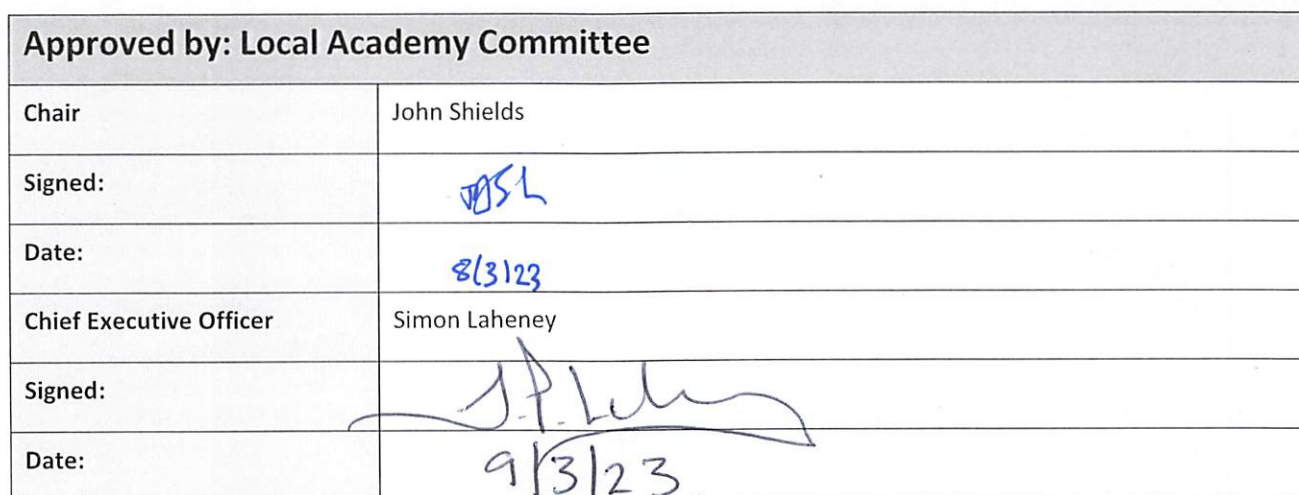 Approved by: Local Academy Committee
Chair John Shields
Signed:
Date: 8/3/23
Chief Executive Officer Simon Laheney
Signed: S.P. Laheney
Date: 9/3/23